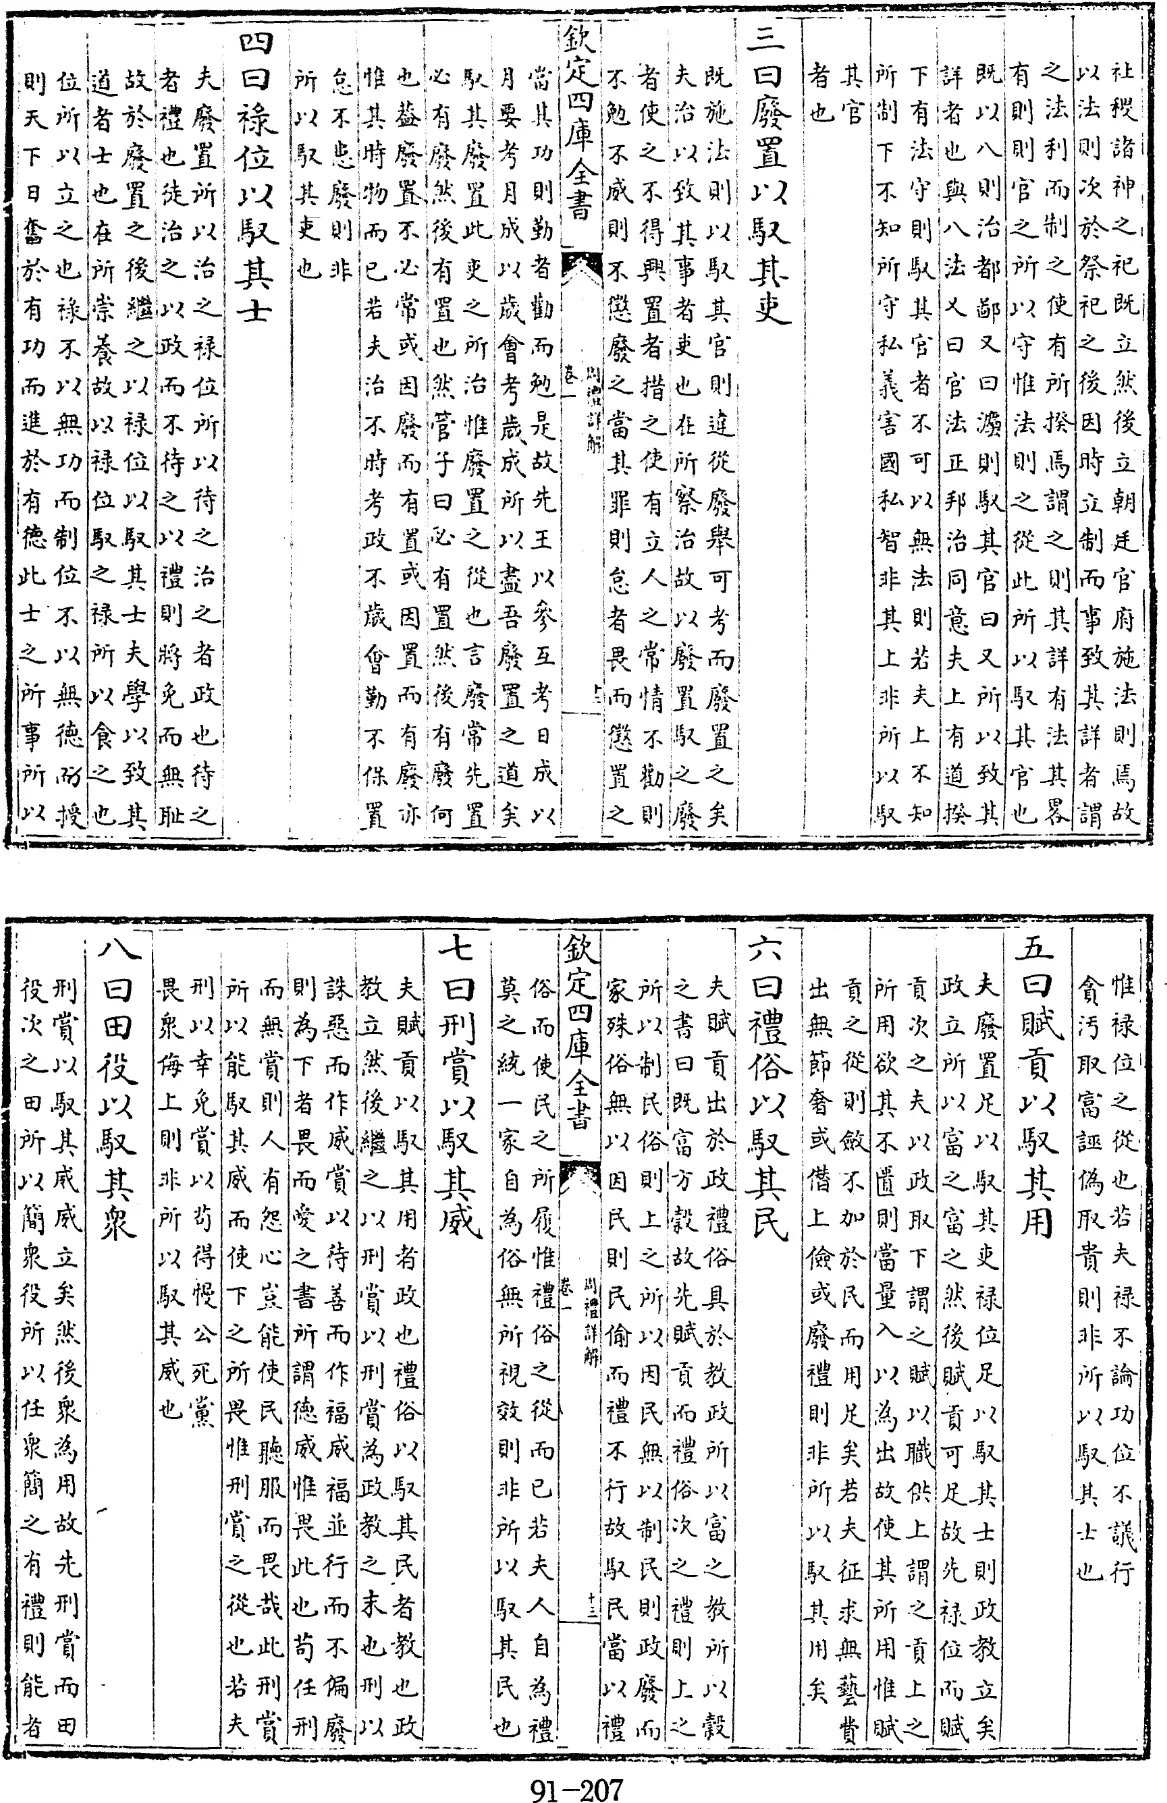 社稷諸神之祀既立然後立朝廷官府施法則焉故
以法則次於祭祀之後因時立制而事致其詳者謂
之法利而制之使有所揆焉謂之則其詳有法其畧
有則則官之所以守惟法則之從此所以馭其官也
既以八則治都鄙又曰灋則馭其官曰又所以致其
詳者也與八法又曰官法正邦治同意夫上有道揆
下有法守則馭其官者不可以無法則若夫上不知
所制下不知所守私義害國私智非其上非所以馭
其官
者也
三曰廢置以馭其吏
既施法則以馭其官則違從廢舉可考而廢置之矣
夫治以致其事者吏也在所察治故以廢置馭之廢
者使之不得興置者措之使有立人之常情不勸則
不勉不威則不懲廢之當其罪則怠者畏而懲置之
欽定四庫全書
周禮詳解
卷一
十二
當其功則勤者勸而勉是故先王以參互考日成以
月要考月成以歲會考歲成所以盡吾廢置之道矣
馭其廢置此吏之所治惟廢置之從也言廢常先置
必有廢然後有置也然管子曰必有置然後有廢何
也葢廢置不必常或因廢而有置或因置而有廢亦
惟其時物而已若夫治不時考政不歲會勤不保置
怠不患廢則非
所以馭其吏也
四曰祿位以馭其士
夫廢置所以治之祿位所以待之治之者政也待之
者禮也徒治之以政而不待之以禮則將免而無耻
故於廢置之後繼之以祿位以馭其士夫學以致其
道者士也在所崇養故以祿位馭之祿所以食之也
位所以立之也祿不以無功而制位不以無德而授
則天下日奮於有功而進於有德此士之所事所以
惟祿位之從也若夫祿不論功位不議行
貪汚取富誣偽取貴則非所以馭其士也
五曰賦貢以馭其用
夫廢置足以馭其吏祿位足以馭其士則政教立矣
政立所以富之富之然後賦貢可足故先祿位而賦
貢次之夫以政取下謂之賦以職供上謂之貢上之
所用欲其不匱則當量入以為出故使其所用惟賦
貢之從則斂不加於民而用足矣若夫征求無藝費
出無節奢或僭上儉或廢禮則非所以馭其用矣
六曰禮俗以馭其民
夫賦貢出於政禮俗具於教政所以富之教所以穀
之書曰既富方穀故先賦貢而禮俗次之禮則上之
所以制民俗則上之所以因民無以制民則政廢而
家殊俗無以因民則民偷而禮不行故馭民當以禮
欽定四庫全書
周禮詳解
卷一
十三
俗而使民之所履惟禮俗之從而已若夫人自為禮
莫之統一家自為俗無所視效則非所以馭其民也
七曰刑賞以馭其威
夫賦貢以馭其用者政也禮俗以馭其民者教也政
教立然後繼之以刑賞以刑賞為政教之末也刑以
誅惡而作威賞以待善而作福威福並行而不偏廢
則為下者畏而愛之書所謂德威惟畏此也苟任刑
而無賞則人有怨心豈能使民聽服而畏哉此刑賞
所以能馭其威而使下之所畏惟刑賞之從也若夫
刑以幸免賞以茍得慢公死黨
畏衆侮上則非所以馭其威也
八曰田役以馭其衆
刑賞以馭其威威立矣然後衆為用故先刑賞而田
役次之田所以簡衆役所以任衆簡之有禮則能者
91-207